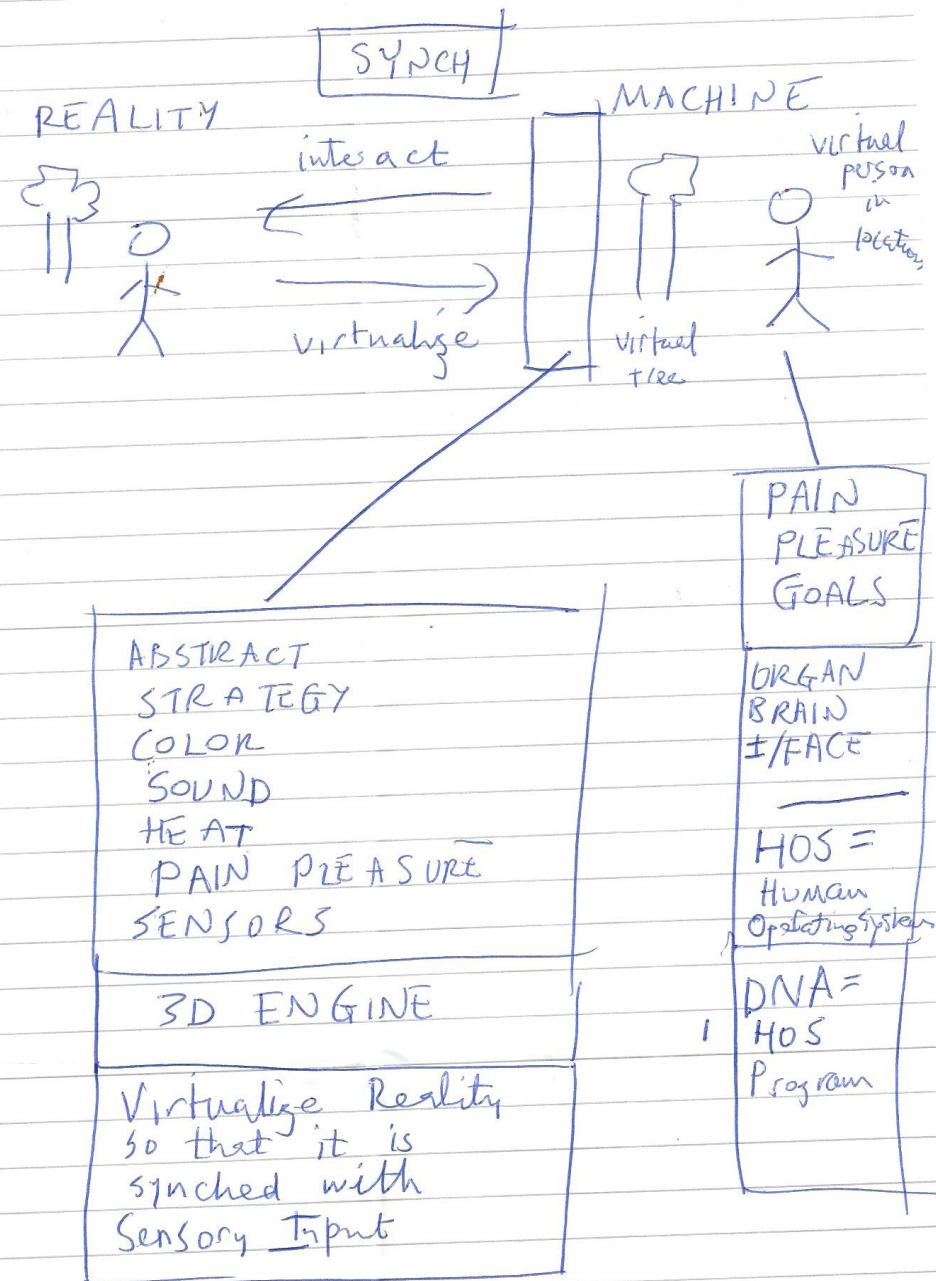 SYNCH
REALITY
MACHINE
interact
virtualize
virtual
person
in
location
virtual
tree
PAIN
PLEASURE
GOALS
ORGAN
BRAIN
I/FACE
HOS =
Human
Operating System
DNA =
HOS
Program
ABSTRACT
STRATEGY
COLOR
SOUND
HEAT
PAIN PLEASURE
SENSORS
3D ENGINE
Virtualize Reality
so that it is
synched with
Sensory Input